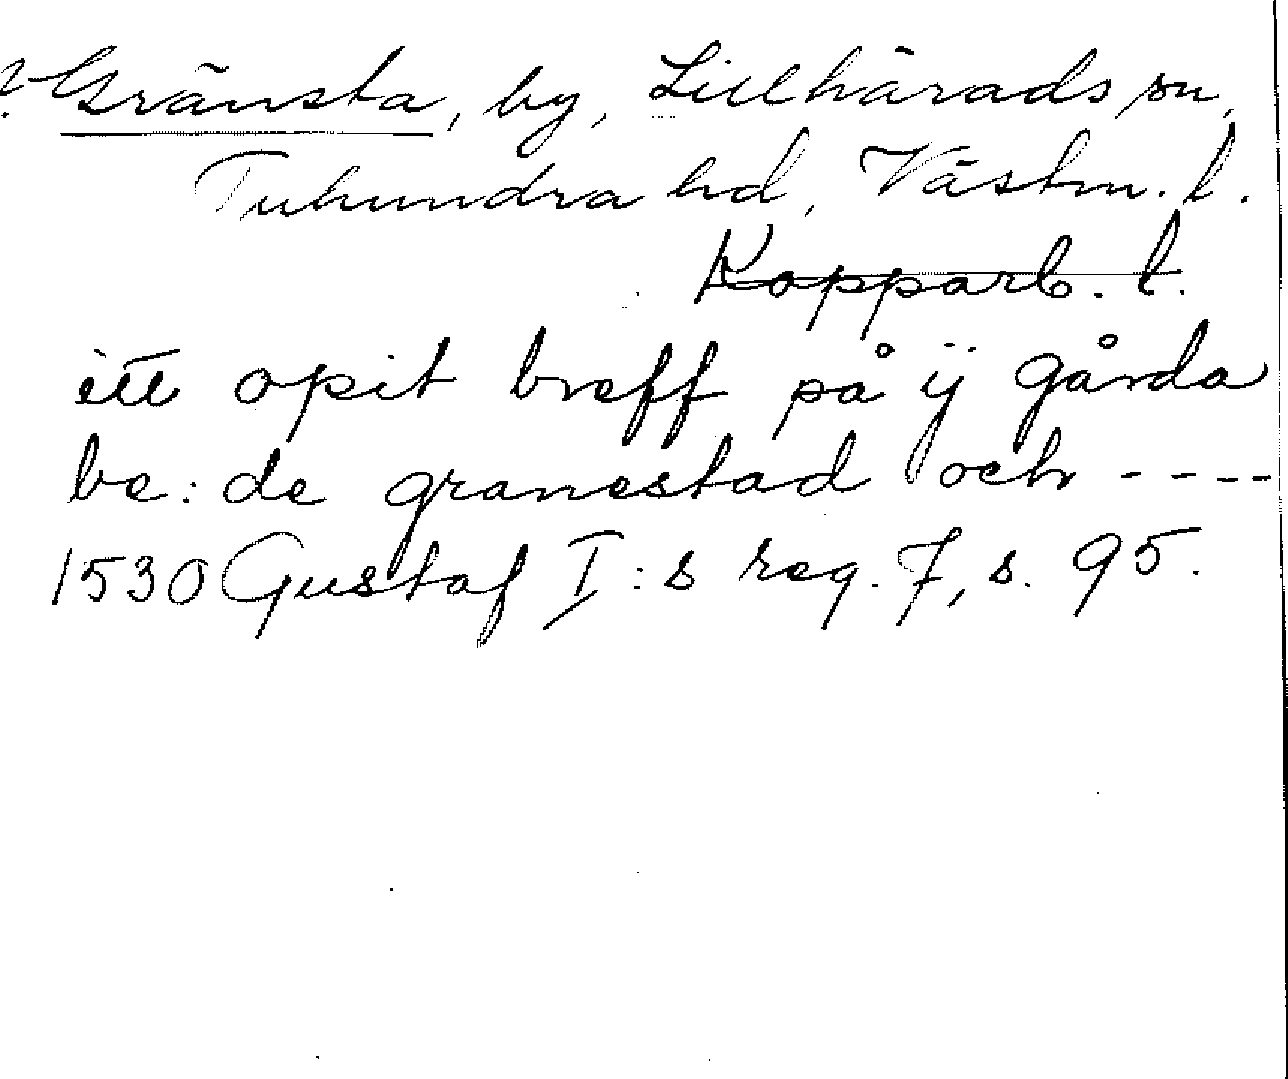 ? Gränsta, by, Lillhärads sn,
Tuhundra hd, Västm. l.
Kopparb. l.
itt opit breff på ij gårda
be: de granestad och ----
1530 Gustaf I:s reg. 7, s. 95.